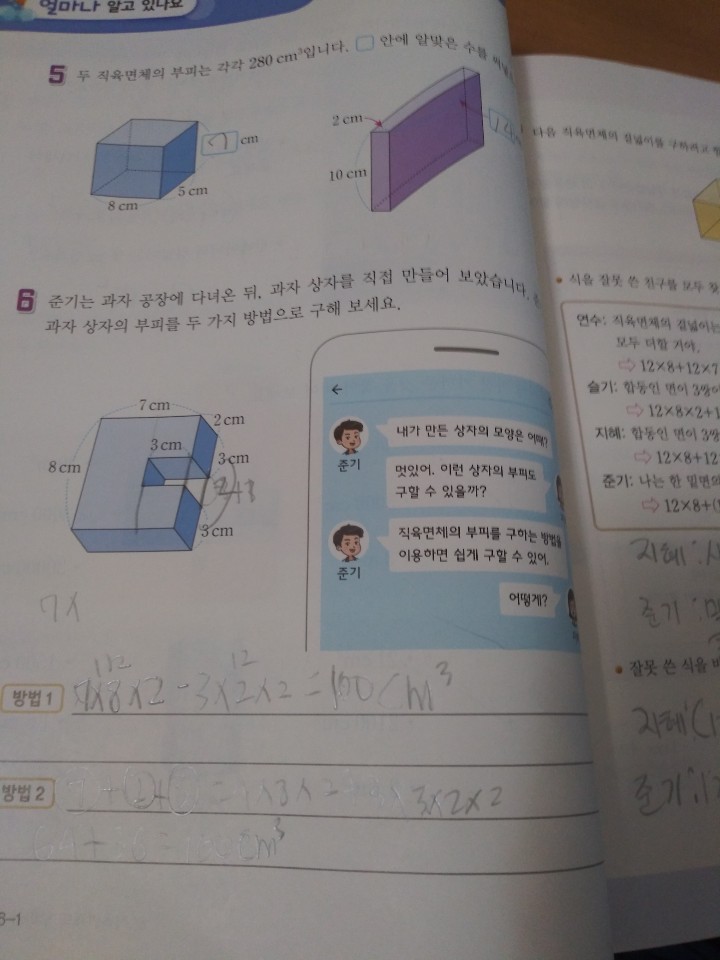 얼마나 알고 있나요
5 두 직육면체의 부피는 각각 280 cm³입니다. □ 안에 알맞은 수를
7 cm
5 cm
8 cm
2 cm
10 cm
14
6 준기는 과자 공장에 다녀온 뒤, 과자 상자를 직접 만들어 보았습니다.
과자 상자의 부피를 두 가지 방법으로 구해 보세요.
7 cm
2 cm
3 cm
3 cm
8 cm
3 cm
준기
내가 만든 상자의 모양은 어때?
멋있어. 이런 상자의 부피도
구할 수 있을까?
준기
직육면체의 부피를 구하는 방법을
이용하면 쉽게 구할 수 있어.
어떻게?
7×
112 12
방법 1 7×8×2-3×2×2=100cm³
방법 2 3×2×2
cm³
6-1
다음 직육면체의 겉넓이를 구하려고
식을 잘못 쓴 친구를 모두
연수: 직육면체의 겉넓이는
모두 더할 거야.
⇨ 12×8+12×7
슬기: 합동인 면이 3쌍이
⇨ 12×8×2+1
지혜: 합동인 면이 3쌍
⇨ 12×8+12
준기: 나는 한 밑면의
⇨ 12×8+(
지혜:
준기:
잘못 쓴 식을
지혜:
준기: